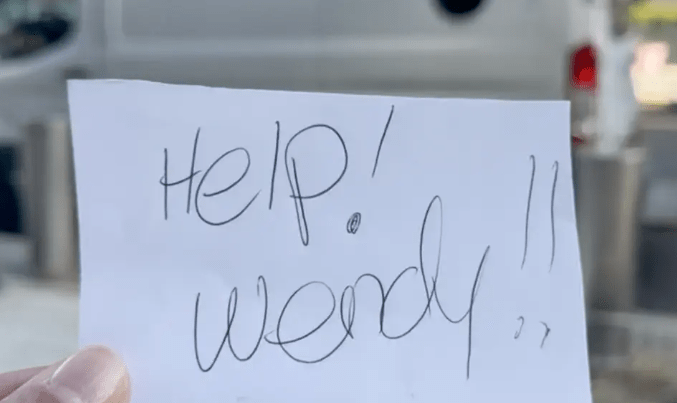 Help!
Wendy!!